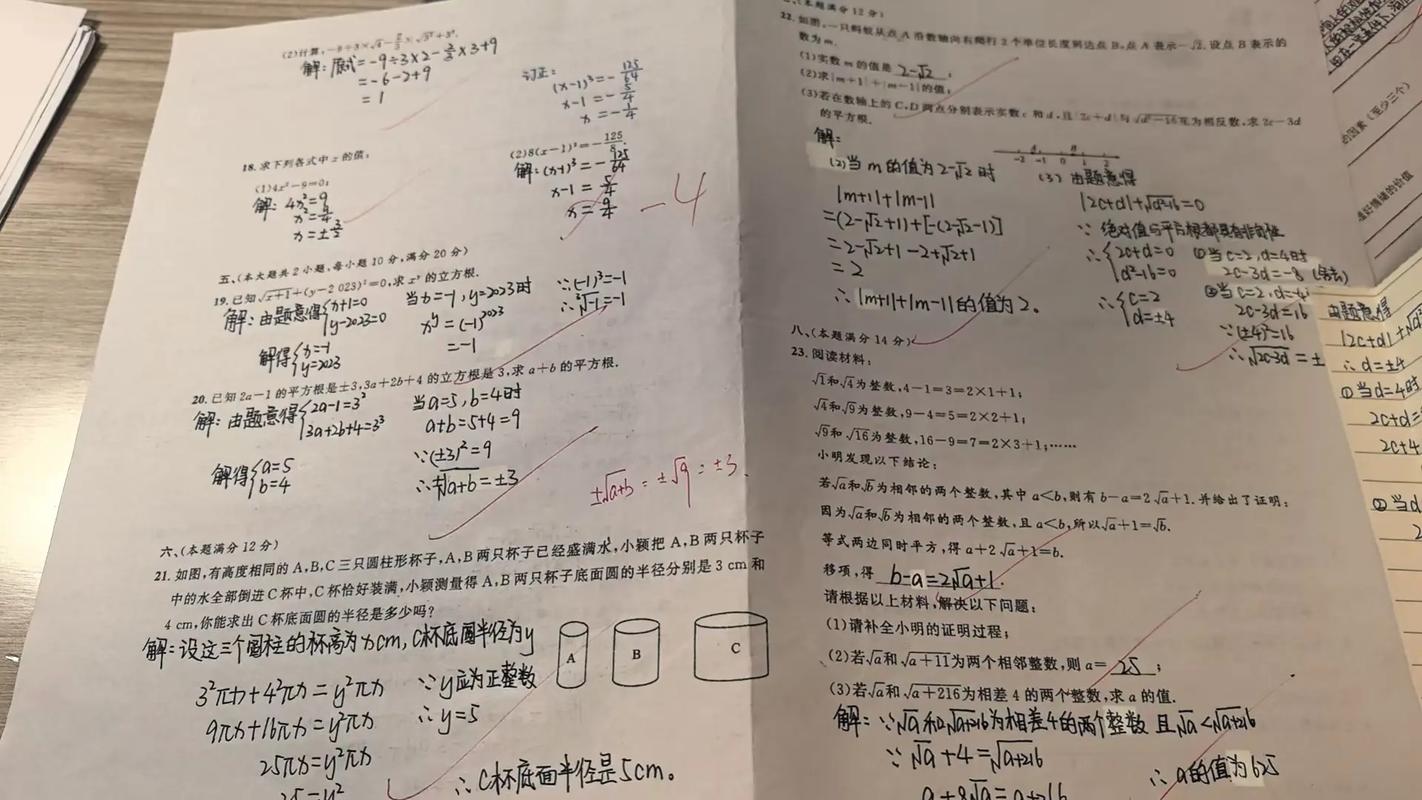 (2)计算:-9÷3×√4-2/3×√3²+3².
解:原式=-9÷3×2-2/3×3+9
=-6-2+9
=1
18.求下列各式中x的值:
(1)4x²-9=0;
解:4x²=9
x²=9/4
x=±3/2
订正:
(x-1)³=-125/64
x-1=-5/4
x=-1/4
(2)8(x-1)³=-125/8.
解:(x-1)³=-125/64
x-1=5/4
x=9/4
-4
五、(本大题共2小题,每小题10分,满分20分)
19.已知√x+1+(y-2 023)²=0,求xʸ的立方根.
解:由题意得{x+1=0
y-2023=0
解得{x=-1
y=2023
当x=-1,y=2023时
xʸ=(-1)²⁰²³
=-1
∵(-1)³=-1
∴³√-1=-1
20.已知2a-1的平方根是±3,3a+2b+4的立方根是3,求a+b的平方根.
解:由题意得{2a-1=3²
3a+2b+4=3³
解得{a=5
b=4
当a=5,b=4时
a+b=5+4=9
∵(±3)²=9
∴±√a+b=±3
±√a+b=±√9=±3.
六、(本题满分12分)
21.如图,有高度相同的A,B,C三只圆柱形杯子,A,B两只杯子已经盛满水,小颖把A,B两只杯子
中的水全部倒进C杯中,C杯恰好装满,小颖测量得A,B两只杯子底面圆的半径分别是3 cm和
4 cm,你能求出C杯底面圆的半径是多少吗?
解:设这三个圆柱的杯高为xcm,C杯底圆半径为y
3²πx+4²πx=y²πx
9πx+16πx=y²πx
25πx=y²πx
25=y²
∵y应为正整数
∴y=5
∴C杯底面半径是5cm。
A
B
C
(本题满分12分)
22.如图,一只蚂蚁从点A沿数轴向右爬行2个单位长度到达点B,点A表示-√2,设点B表示的
数为m.
(1)实数m的值是2-√2;
(2)求|m+1|+|m-1|的值;
(3)若在数轴上的C,D两点分别表示实数c和d,且|2c+d|与√d²-16互为相反数,求2c-3d
的平方根.
A B
-2 -1 0 1 2
解:
(2)当m的值为2-√2时
|m+1|+|m-1|
=(2-√2+1)+[-(2-√2-1)]
=2-√2+1-2+√2+1
=2
∴|m+1|+|m-1|的值为2。
(3)由题意得
|2c+d|+√d²-16=0
∵绝对值与平方根都具有非负性
∴{2c+d=0
d²-16=0
∴{c=2
d=±4
①当c=2,d=4时
2c-3d=-8(舍去)
②当c=2,d=-4
2c-3d=16
∵(±4)²=16
∴√2c-3d=±
八、(本题满分14分)
23.阅读材料:
√1和√4为整数,4-1=3=2×1+1;
√4和√9为整数,9-4=5=2×2+1;
√9和√16为整数,16-9=7=2×3+1;……
小明发现以下结论:
若√a和√b为相邻的两个整数,其中a<b,则有b-a=2√a+1.并给出了证明:
因为√a和√b为相邻的两个整数,且a<b,所以√a+1=√b.
等式两边同时平方,得a+2√a+1=b.
移项,得b-a=2√a+1.
请根据以上材料,解决以下问题:
(1)请补全小明的证明过程;
(2)若√a和√a+11为两个相邻整数,则a=25;
(3)若√a和√a+216为相差4的两个整数,求a的值.
解:∵√a和√a+216为相差4的两个整数且√a<√a+216
∵√a+4=√a+216
a+8√a=a+216
∴a的值为625
的因素(至少三个)
好情绪的价值
由题意得
|2c+d|+√d²
∴d=±4
①当d=4时
2c+d=
2c+4
②当d